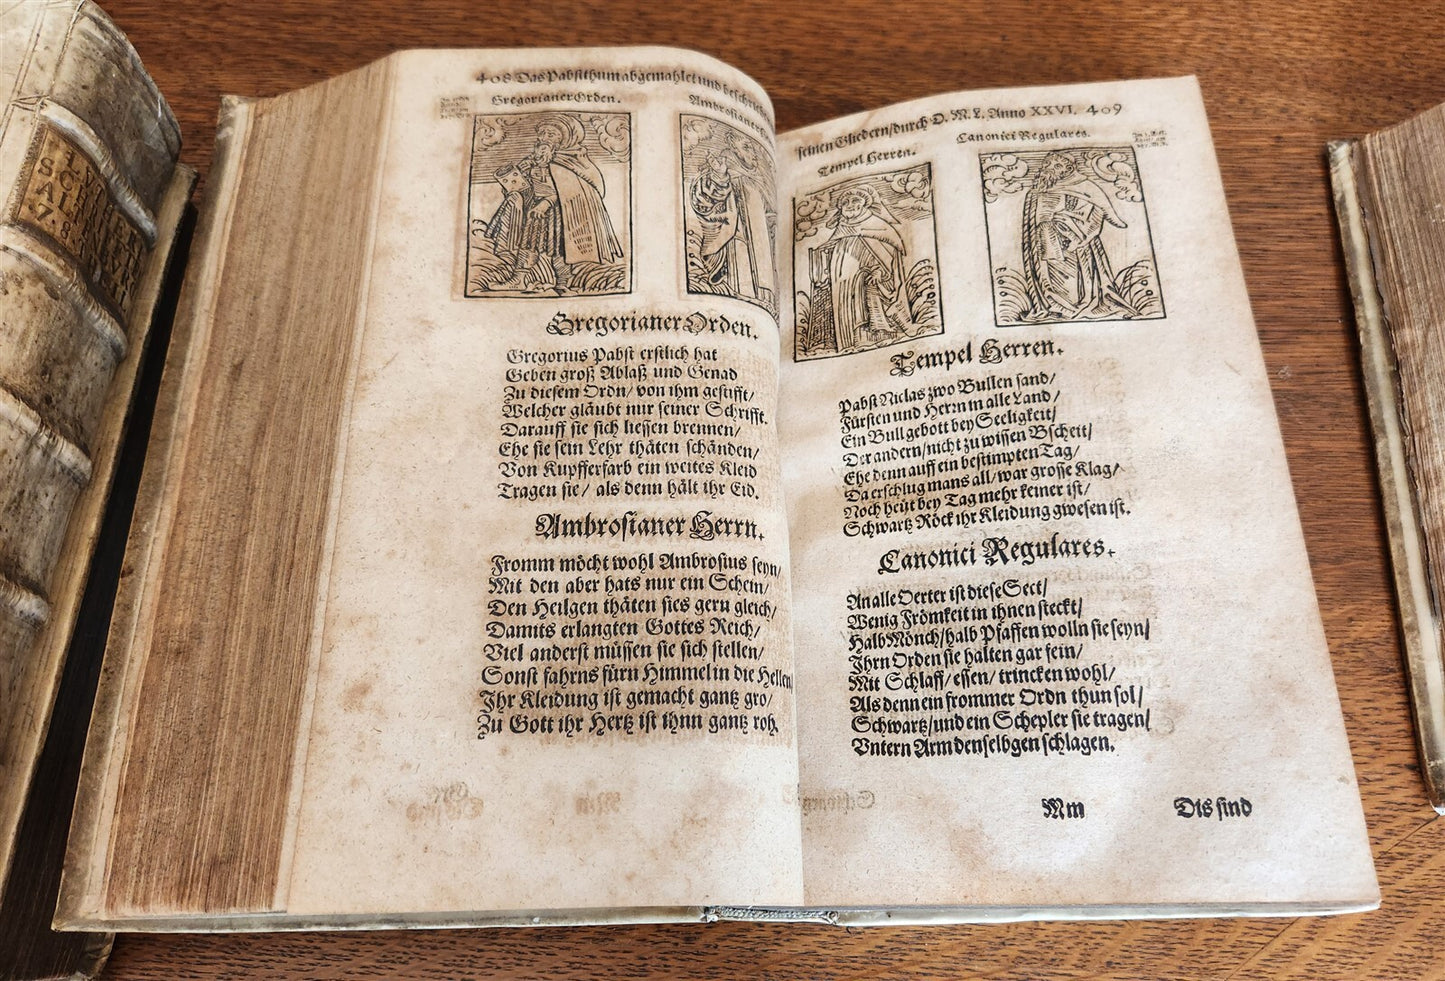 408 Das Pabstthum abgemahlet und beschrieb
Gregorianer Orden.
Ambrosianer
Gregorianer Orden.
Gregorius Pabst erstlich hat
Geben groß Ablaß und Genad
Zu diesem Ordn/ von ihm gestifft/
Welcher gläubt nur seiner Schrifft.
Darauff sie sich liessen brennen/
Ehe sie sein Lehr thäten schänden/
Von Kupfferfarb ein weites Kleid
Tragen sie/ als denn hält ihr Eid.
Ambrosianer Herrn.
Fromm möcht wohl Ambrosius seyn/
Mit den aber hats nur ein Schein/
Den Heilgen thäten sies gern gleich/
Damits erlangten Gottes Reich/
Viel anderst müssen sie sich stellen/
Sonst fahrns fürn Himmel in die Hellen/
Ihr Kleidung ist gemacht gantz gro/
Zu Gott ihr Hertz ist ihnn gantz roh.
seinen Gliedern/durch D. M. L. Anno XXVI. 409
Tempel Herren.
Canonici Regulares.
Tempel Herren.
Pabst Niclas zwo Bullen sand/
Fürsten und Herrn in alle Land/
Ein Bull gebott bey Seeligkeit/
Der andern/nicht zu wissen Bscheit/
Ehe denn auff ein bestimpten Tag/
Da erschlug mans all/war grosse Klag/
Noch heüt bey Tag mehr keiner ist/
Schwartz Röck ihr Kleidung gwesen ist.
Canonici Regulares.
An alle Oerter ist diese Sect/
Wenig Frömkeit in ihnen steckt/
Halb Mönch/halb Pfaffen wolln sie seyn/
Ihrn Orden sie halten gar fein/
Mit Schlaff/ essen/ trincken wohl/
Als denn ein frommer Ordn thun sol/
Schwartz/und ein Schepler sie tragen/
Untern Arm denselbgen schlagen.
Mm
Dis sind